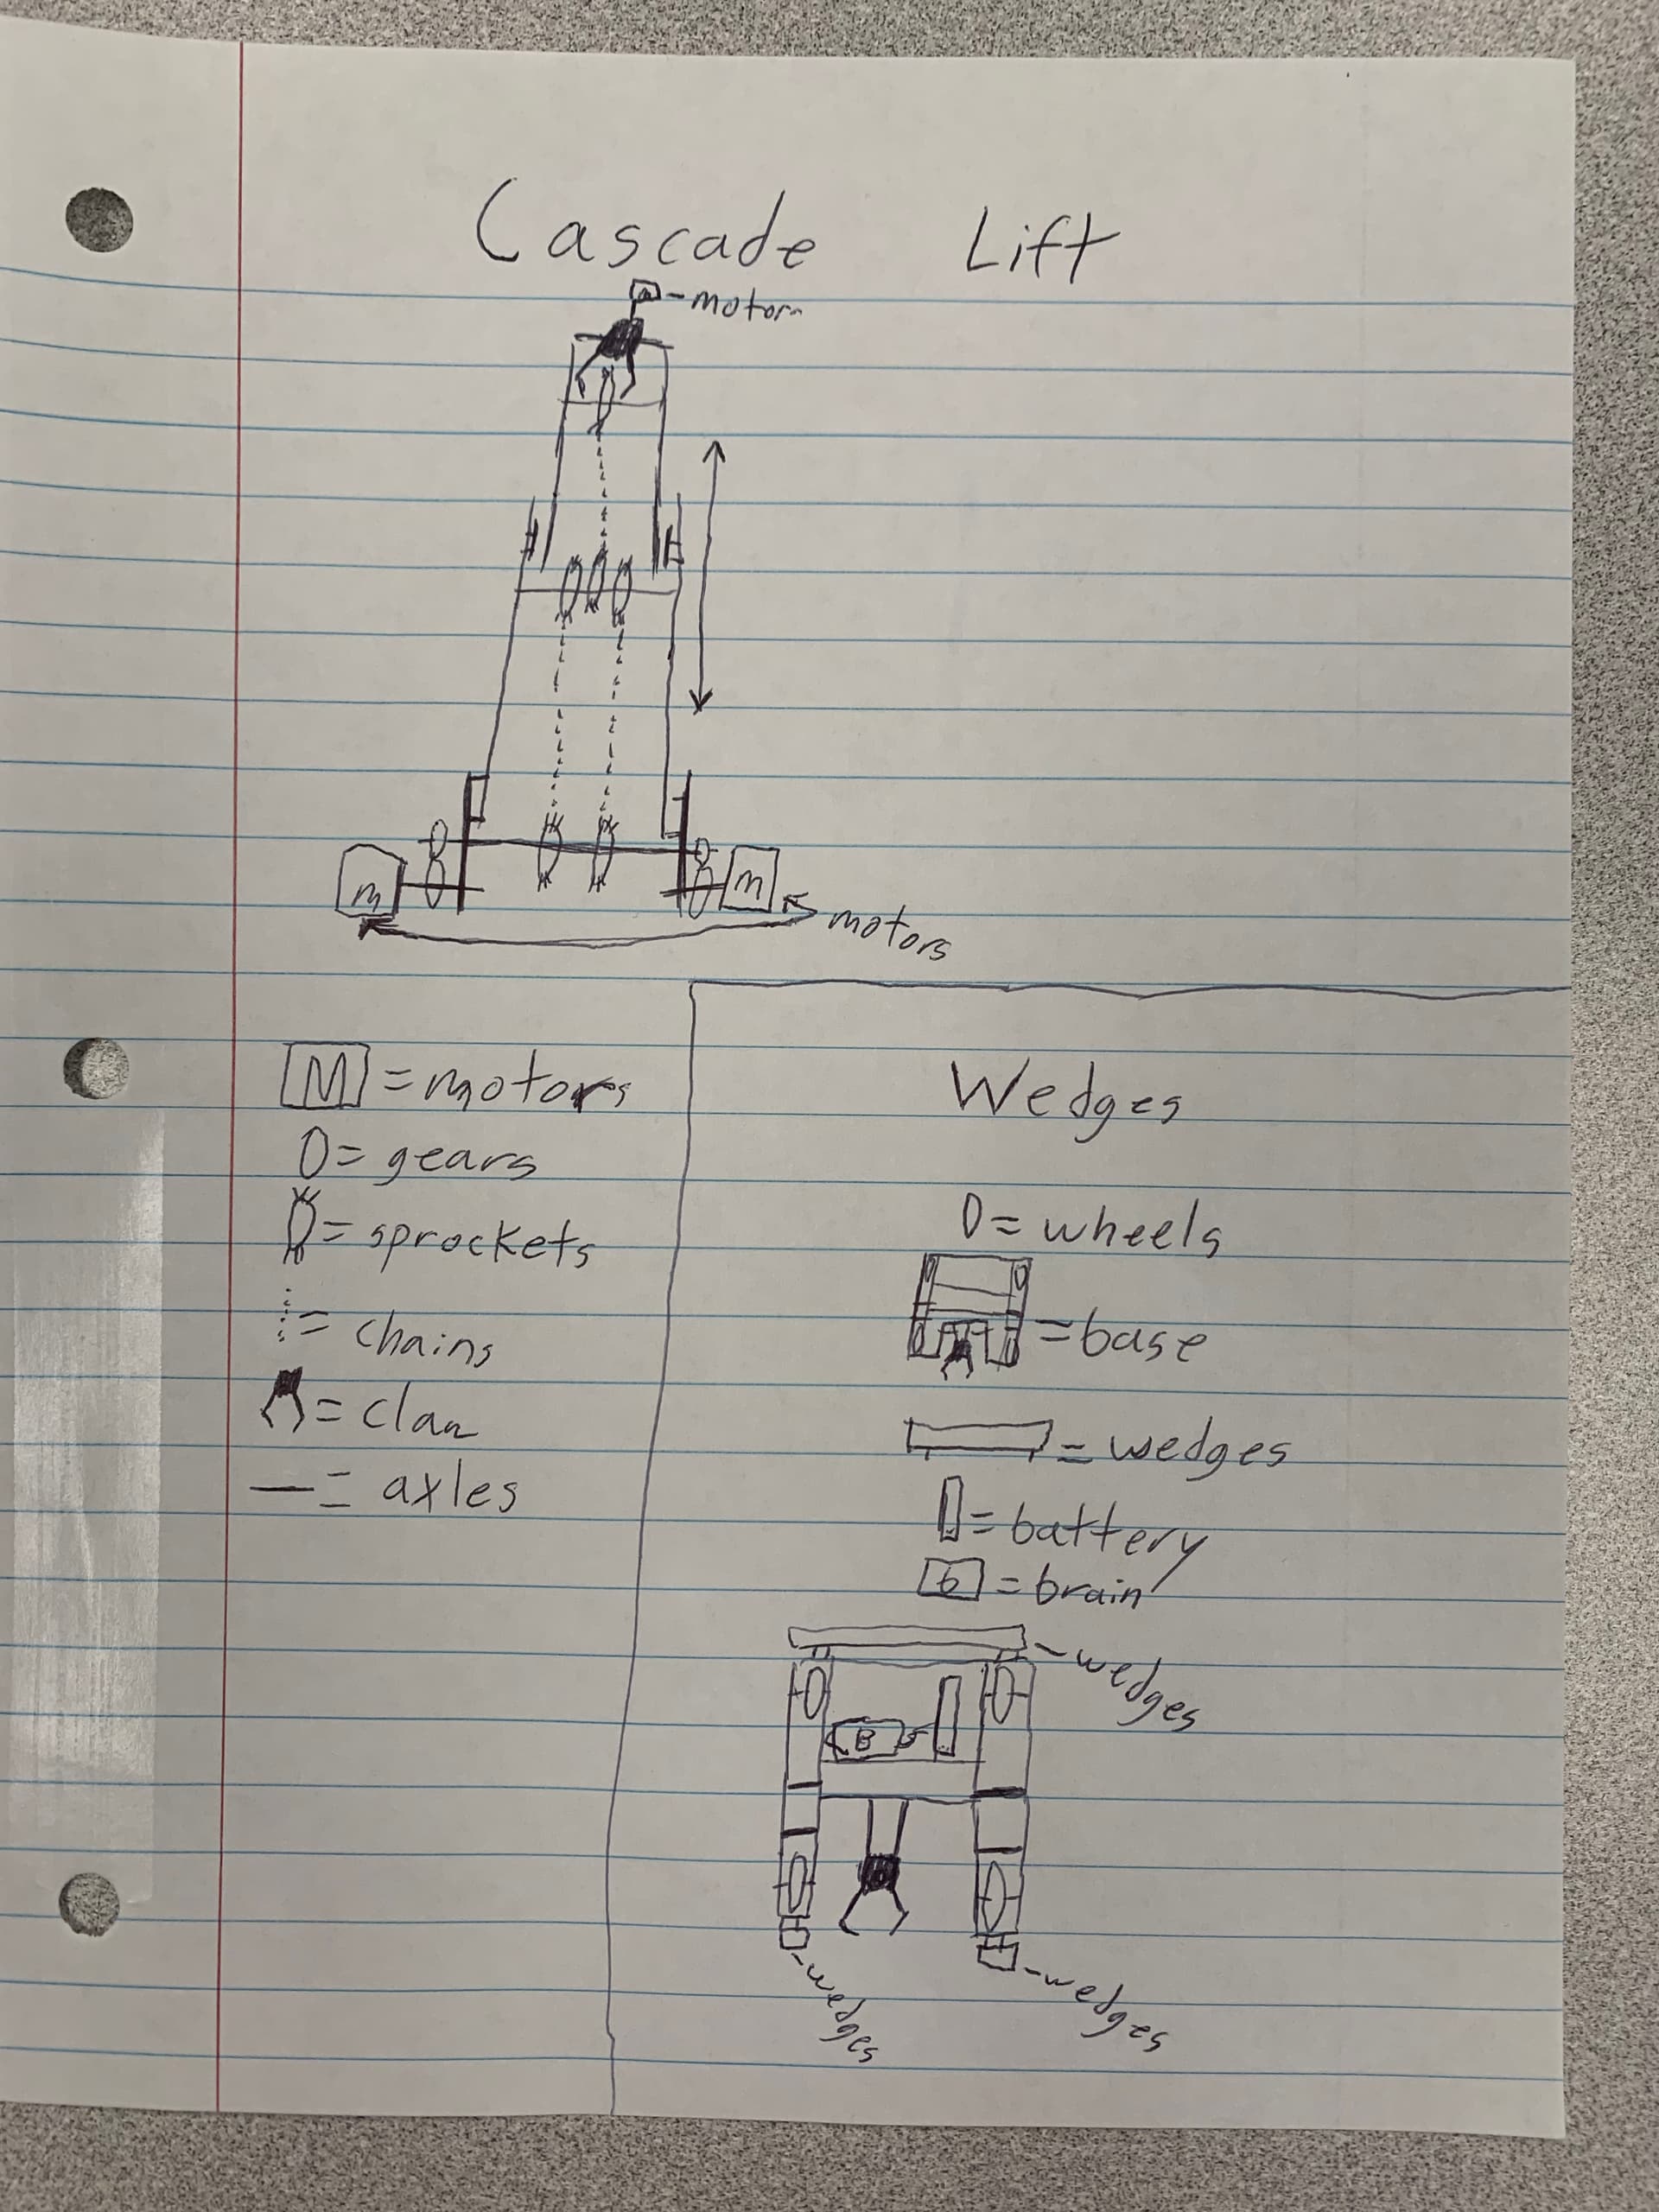 Cascade Lift
-motor
m
m
motors
M = motors
0= gears
= sprockets
= chains
= claw
— = axles
Wedges
0= wheels
= base
= wedges
= battery
b = brain
-wedges
B
-wedges
-wedges